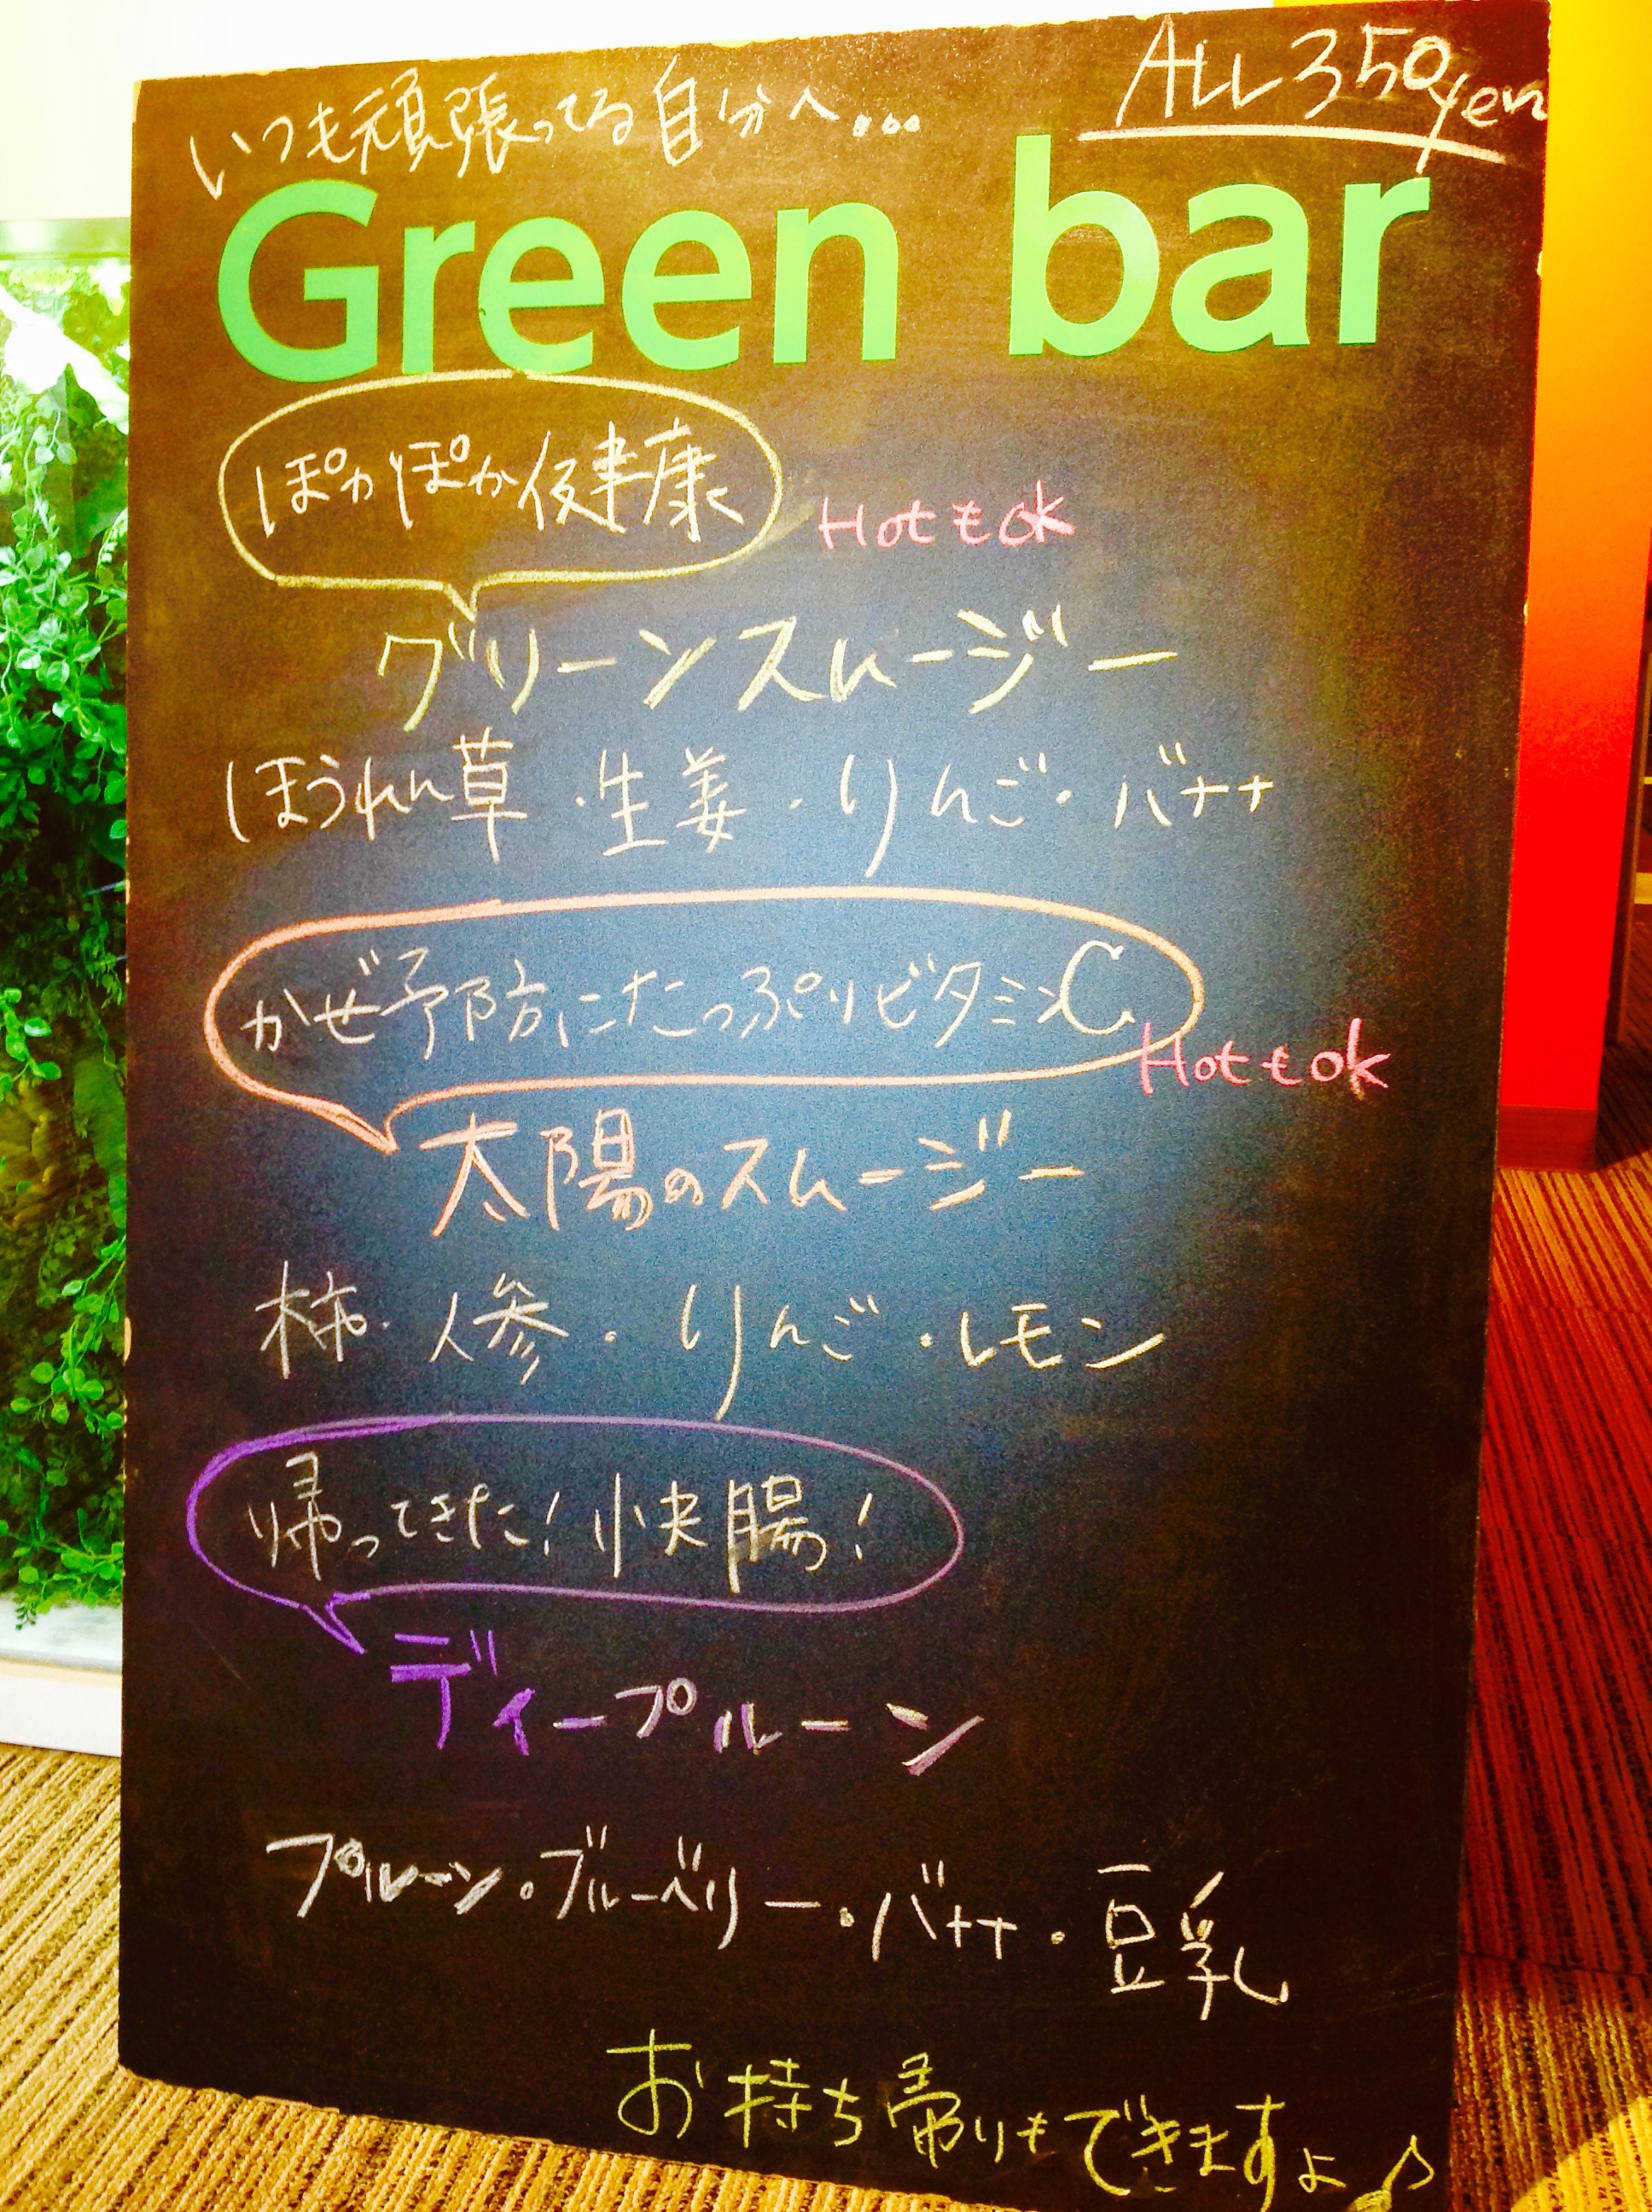 いつも頑張ってる自分へ...
ALL 350yen
Green bar
ぽかぽか健康
Hotもok
グリーンスムージー
ほうれん草・生姜・りんご・バナナ
かぜ予防にたっぷりビタミンC
Hotもok
太陽のスムージー
柿・人参・りんご・レモン
帰ってきた!快腸!
ディープルーン
プルーン・ブルーベリー・バナナ・豆乳
お持ち帰りもできますよ♪